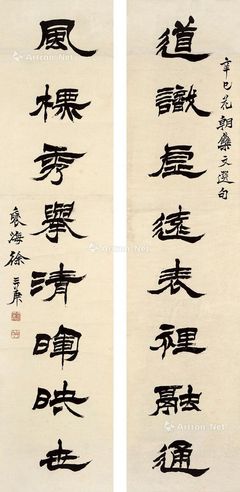 辛巳花朝雧文選句
道識虛遠表裡融通
風標秀舉清暉映世
褱海徐三庚
Artron.Net